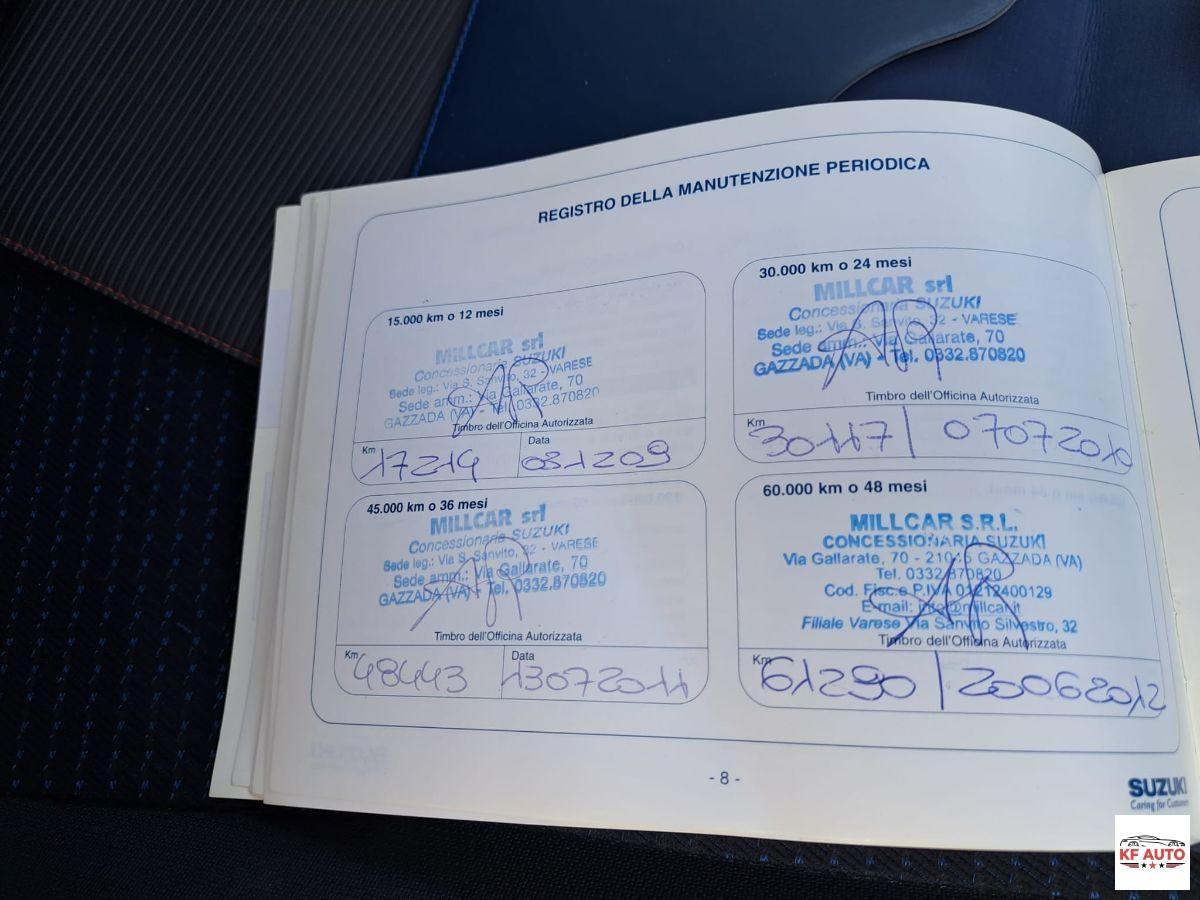 REGISTRO DELLA MANUTENZIONE PERIODICA
15.000 km o 12 mesi
MILLCAR srl
Concessionaria SUZUKI
Sede leg.: Via S. Sanvito, 32 - VARESE
Sede amm.: Via Gallarate, 70
GAZZADA (VA) - Tel. 0332.870820
Timbro dell'Officina Autorizzata
Km
Data
17214
031209
30.000 km o 24 mesi
MILLCAR srl
Concessionaria SUZUKI
Sede leg.: Via S. Sanvito, 32 - VARESE
Sede amm.: Via Gallarate, 70
GAZZADA (VA) - Tel. 0332.870820
Timbro dell'Officina Autorizzata
Km
30117 | 07072010
45.000 km o 36 mesi
MILLCAR srl
Concessionaria SUZUKI
Sede leg.: Via S. Sanvito, 32 - VARESE
Sede amm.: Via Gallarate, 70
GAZZADA (VA) - Tel. 0332.870820
Timbro dell'Officina Autorizzata
Km
Data
48443
13072011
60.000 km o 48 mesi
MILLCAR S.R.L.
CONCESSIONARIA SUZUKI
Via Gallarate, 70 - 21045 GAZZADA (VA)
Tel. 0332.870820
Cod. Fisc.e P.IVA 01212400129
E-mail: info@millcar.it
Filiale Varese Via Sanvito Silvestro, 32
Timbro dell'Officina Autorizzata
Km
61290 | 20062012
- 8 -
SUZUKI
Caring for Customers
KF AUTO